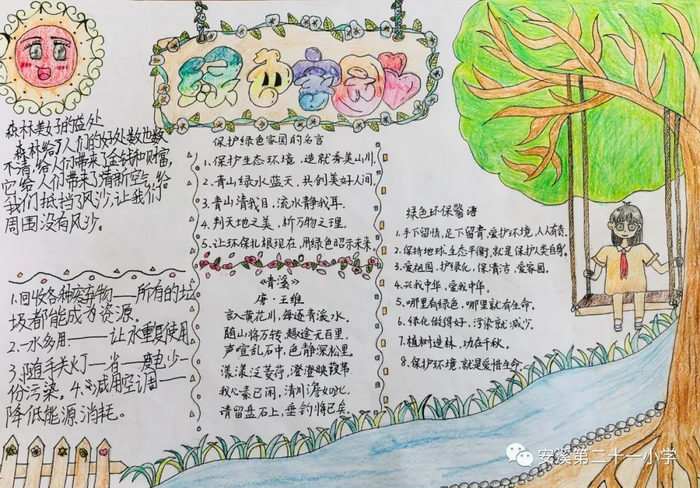 绿色家园
森林美好的益处
森林给了人们的好处数也数
不清,给人们带来了金钱和财富,
它给人们带来了清新空气,给
我们抵挡了风沙,让我们
周围没有风沙。
1.回收各种废弃物——所有的垃
圾都能成为资源。
2.一水多用——让水重复使用
3.随手关灯——省一度电少一
份污染。4.减用空调——
降低能源消耗。
保护绿色家园的名言
1.保护生态环境,造就秀美山川.
2.青山绿水蓝天,共创美好人间.
3.青山清我目,流水静我耳.
4.判天地之美,析万物之理.
5.让环保扎根现在,用绿色昭示未来.
《青溪》
唐·王维
言入黄花川,每逐青溪水.
随山将万转,趣途无百里.
声喧乱石中,色静深松里.
漾漾泛菱荇,澄澄映葭苇
我心素已闲,清川澹如此.
请留盘石上,垂钓将已矣.
绿色环保警语
1.手下留情,足下留青,爱护环境,人人有责.
2.保持地球生态平衡,就是保护人类自身.
3.爱祖国,护绿化,保清洁,爱家园.
4.在我中华,爱我中华.
5.哪里有绿色,哪里就有生命.
6.绿化做得好,污染就减少.
7.植树造林,功在千秋.
8.保护环境,就是爱惜生命.
安溪第二十一小学